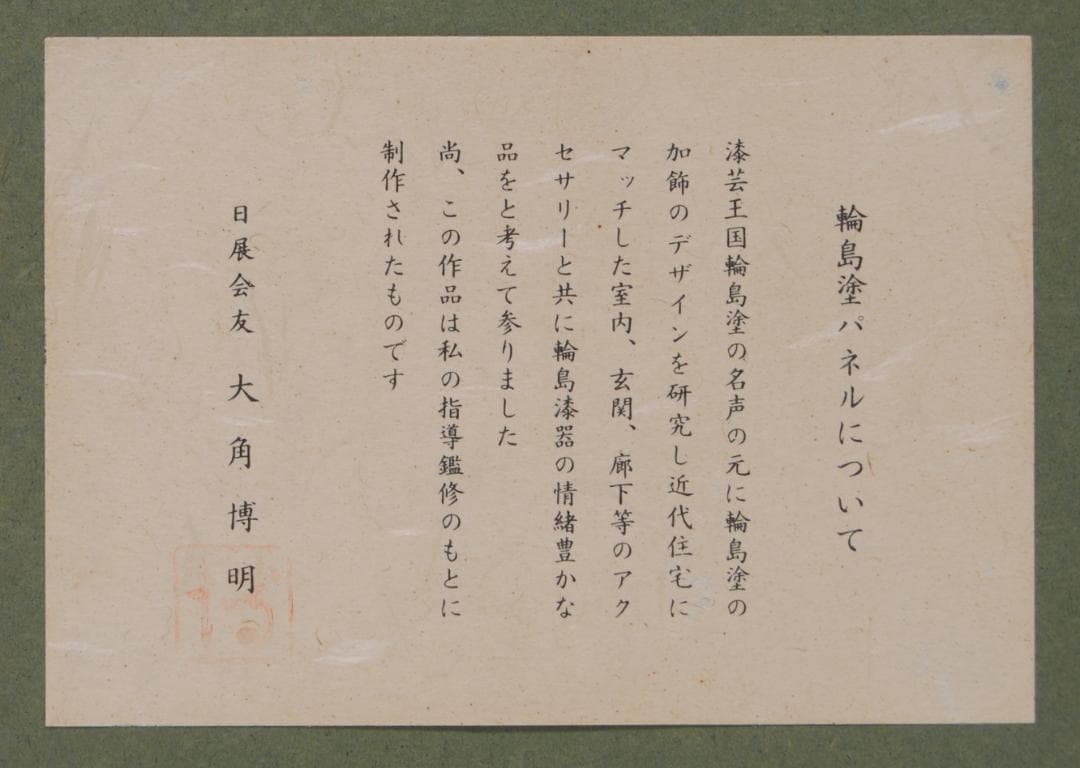 輪島塗パネルについて
漆芸王国輪島塗の名声の元に輪島塗の
加飾のデザインを研究し近代住宅に
マッチした室内、玄関、廊下等のアク
セサリーと共に輪島漆器の情緒豊かな
品をと考えて参りました
尚、この作品は私の指導鑑修のもとに
制作されたものです
日展会友 大角博明